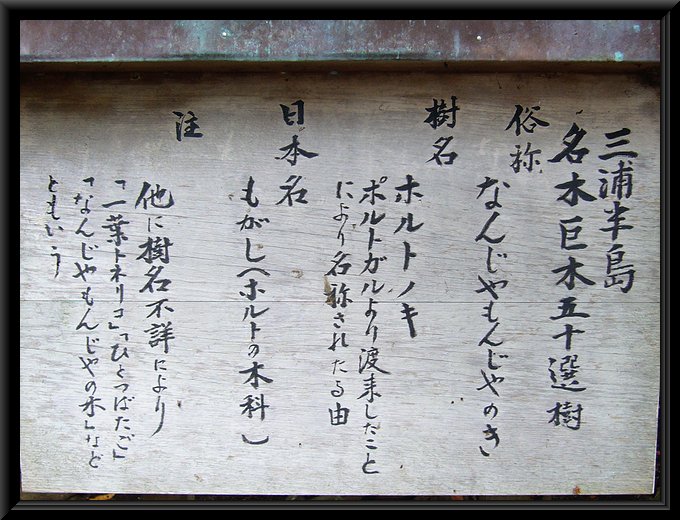 三浦半島
名木巨木五十選樹
俗称
なんじゃもんじゃのき
樹名
ホルトノキ
ポルトガルより渡来したこと
により名称されたる由
日本名
もがし(ホルトの木科)
注
他に樹名不詳により
「一葉トネリコ」「ひとつばたご」
「なんじゃもんじゃの木」など
ともいう